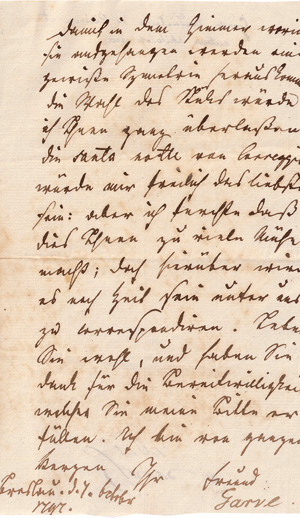 damit in dem Zimmer worin
sie aufgehangen werden eine
gewisse Symetrie herauskomme
die Wahl des Stüks würde
ich Ihnen ganz überlassen
die santa notte von Correggio
würde mir freilich das liebste
sein: aber ich fürchte daß
dies Ihnen zu viele Mühe
macht; doch hierüber wird
es noch Zeit sein unter uns
zu correspondiren. Leben
Sie wohl, und haben Sie
Dank für die Bereitwilligkeit
welcher Sie meine Bitte er
füllen. Ich bin von ganzem
Herzen Ihr Freund
Breslau. d. 7. October Garve.
1797.